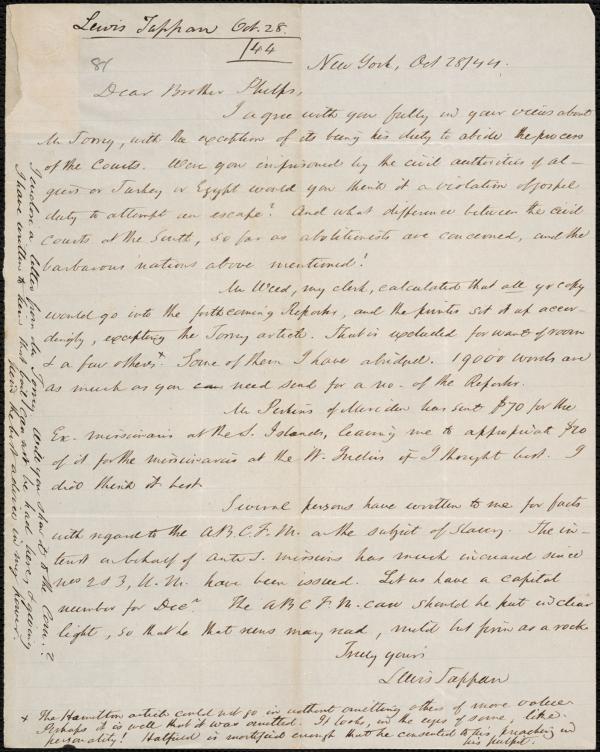 Lewis Tappan Oct. 28.
/44
81
New York, Oct 28/44.
Dear Brother Phelps,
I agree with you fully in your views about
Mr Torrey, with the exception of its being his duty to abide the process
of the Courts. Were you imprisoned by the civil authorities of Al-
giers or Turkey or Egypt would you think it a violation of gospel
duty to attempt an escape? And what difference between the civil
Courts at the South, so far as abolitionists are concerned, and the
barbarous nations above mentioned!
Mr Weed, my clerk, calculated that all yr copy
would go into the forthcoming Reporter, and the printer set it up accor-
dingly, excepting the Torrey article. That is excluded for want of room
& a few others x. Some of them I have abridged. 19000 words are
as much as you need send for a no. of the Reporter.
Mr Perkins of Meriden has sent $70 for the
Ex. missionaries at the S. Islands, leaving me to appropriate $20
of it for the missionaries at the W. Indies if I thought best. I
did think it best.
Several persons have written to me for facts
with regard to the A B C. F. M. on the subject of slavery. The in-
terest in behalf of anti S. missions has much increased since
nos 2 & 3, U. M. have been issued. Let us have a capital
number for Decr. The A B C F M. case should be put in clear
light, so that he that runs may read, mild but firm as a rock
Truly yours
Lewis Tappan
x The Hamilton article could not go in without omitting others of more value.
Perhaps it is well that it was omitted. It looks, in the eyes of some, like
personality! Hatfield is mortified enough that he consented to his preaching in
his pulpit.
I enclose a letter from Mr Torrey. Will you show it to the Com.?
I have written to him that bail can not be had here, & giving
him the best advice in my power.